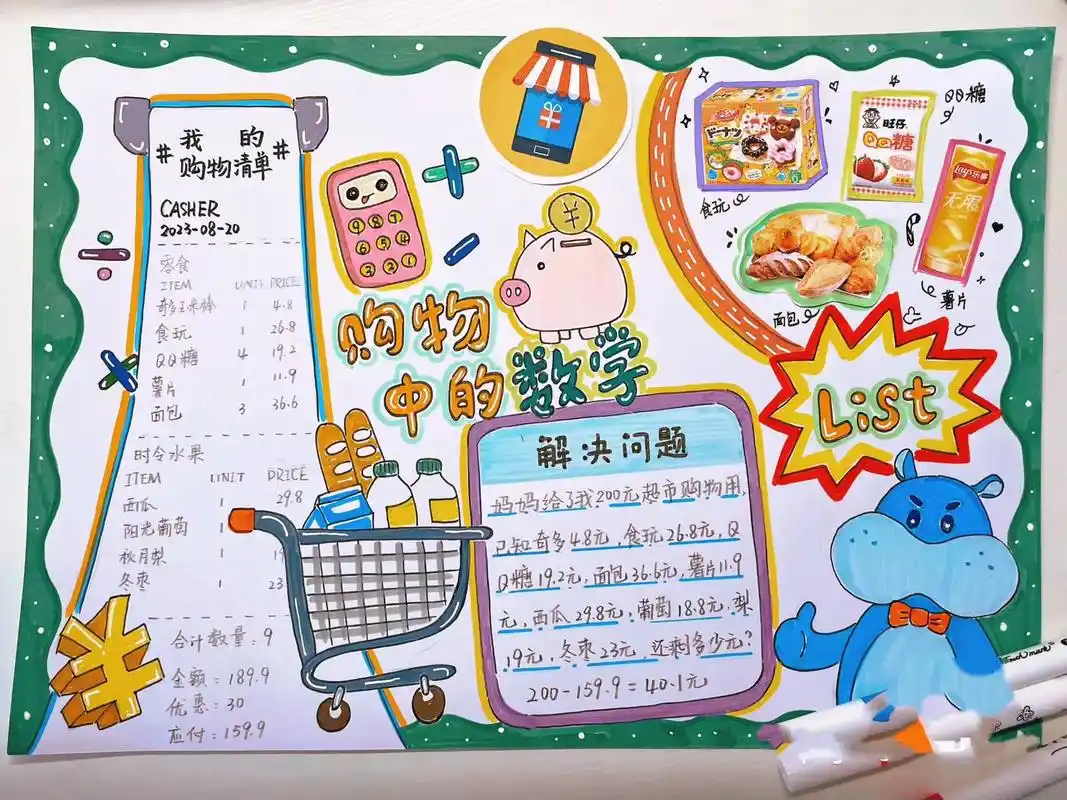 我 的
# 购物清单 #
CASHER
2023-08-20
零食
ITEM UNIT PRICE
奇多玉米棒 1 4.8
食玩 1 26.8
QQ糖 4 19.2
薯片 1 11.9
面包 3 36.6
时令水果
ITEM UNIT PRICE
西瓜 1 29.8
阳光葡萄 1
秋月梨 1
冬枣 1 23
合计数量：9
金额：189.9
优惠：30
应付：159.9
¥
9 8 7
6 5 4
3 2 1
¥
购物
中的数学
解决问题
妈妈给了我200元超市购物用，
已知奇多4.8元，食玩26.8元，Q
Q糖19.2元，面包36.6元，薯片11.9
元，西瓜29.8元，葡萄18.8元，梨
19元，冬枣23元，还剩多少元？
200-159.9=40.1元
ドーナツ
食玩
旺仔
QQ糖
QQ糖
Lay's乐事
无限
薯片
面包
LiSt
Touch mark